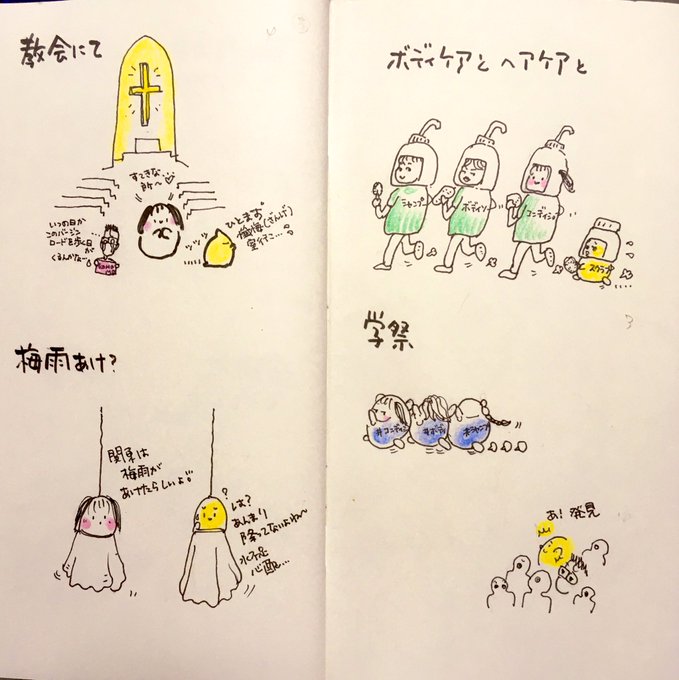 教会にて
すてきな
所〜♡
いつの日か
このバージン
ロードを歩く日が
くるんかな〜
ひとまず
懺悔(ざんげ)
室行こ…
ッッッ
梅雨あけ?
関東は
梅雨が
あけたらしいよ
?
は?
あんまり
降ってないよね〜
水不足
心配…
ボディケアと ヘアケアと
シャンプ
ボディソ
コンディショ
スクラブ
学祭
#コンディ
#ボディ
#シャンプ
あ!発見